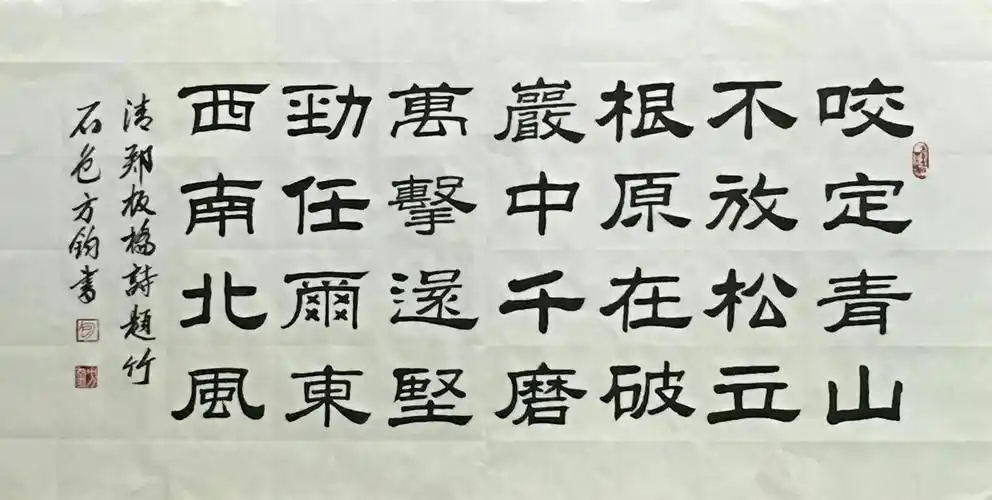 咬定青山
不放松立
根原在破
巖中千磨
萬擊還堅
勁任爾東
西南北風
清郑板橋詩題竹
石包方鈞書